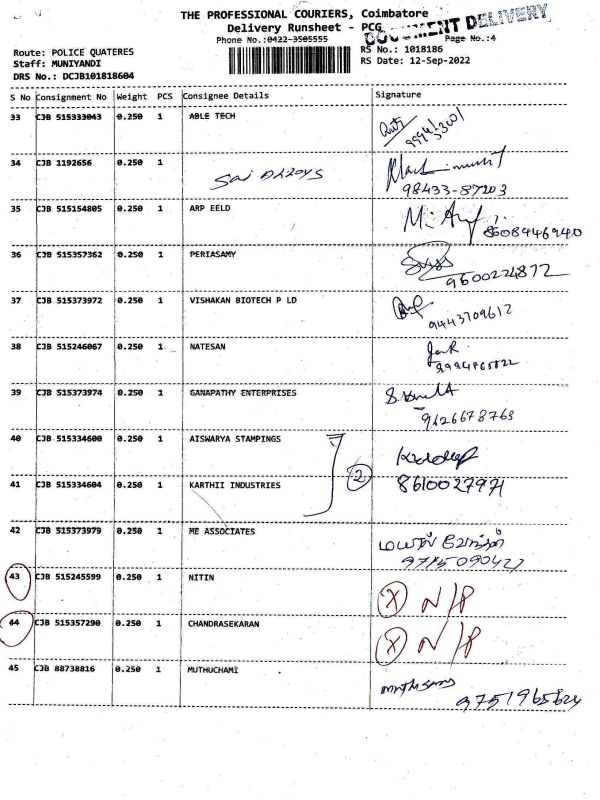 THE PROFESSIONAL COURIERS, Coimbatore
Delivery Runsheet - PCG
DOCUMENT DELIVERY
Phone No.:0422-3505555
Page No.:4
Route: POLICE QUATERES
RS No.: 1018186
Staff: MUNIYANDI
RS Date: 12-Sep-2022
DRS No.: DCJB101818604
S No Consignment No Weight PCS Consignee Details Signature
33 CJB 515333043 0.250 1 ABLE TECH
34 CJB 1192656 0.250 1
98433-87203
35 CJB 515154805 0.250 1 ARP EELD
8608446940
36 CJB 515357362 0.250 1 PERIASAMY
9600224872
37 CJB 515373972 0.250 1 VISHAKAN BIOTECH P LD
9443709612
38 CJB 515246067 0.250 1 NATESAN
39 CJB 515373974 0.250 1 GANAPATHY ENTERPRISES
9626678763
40 CJB 515334600 0.250 1 AISWARYA STAMPINGS
2
41 CJB 515334604 0.250 1 KARTHII INDUSTRIES
8610027971
42 CJB 515373979 0.250 1 ME ASSOCIATES
9715090427
43 CJB 515245599 0.250 1 NITIN
X N/P
44 CJB 515357290 0.250 1 CHANDRASEKARAN
X N/P
45 CJB 88738816 0.250 1 MUTHUCHAMI
9751965624